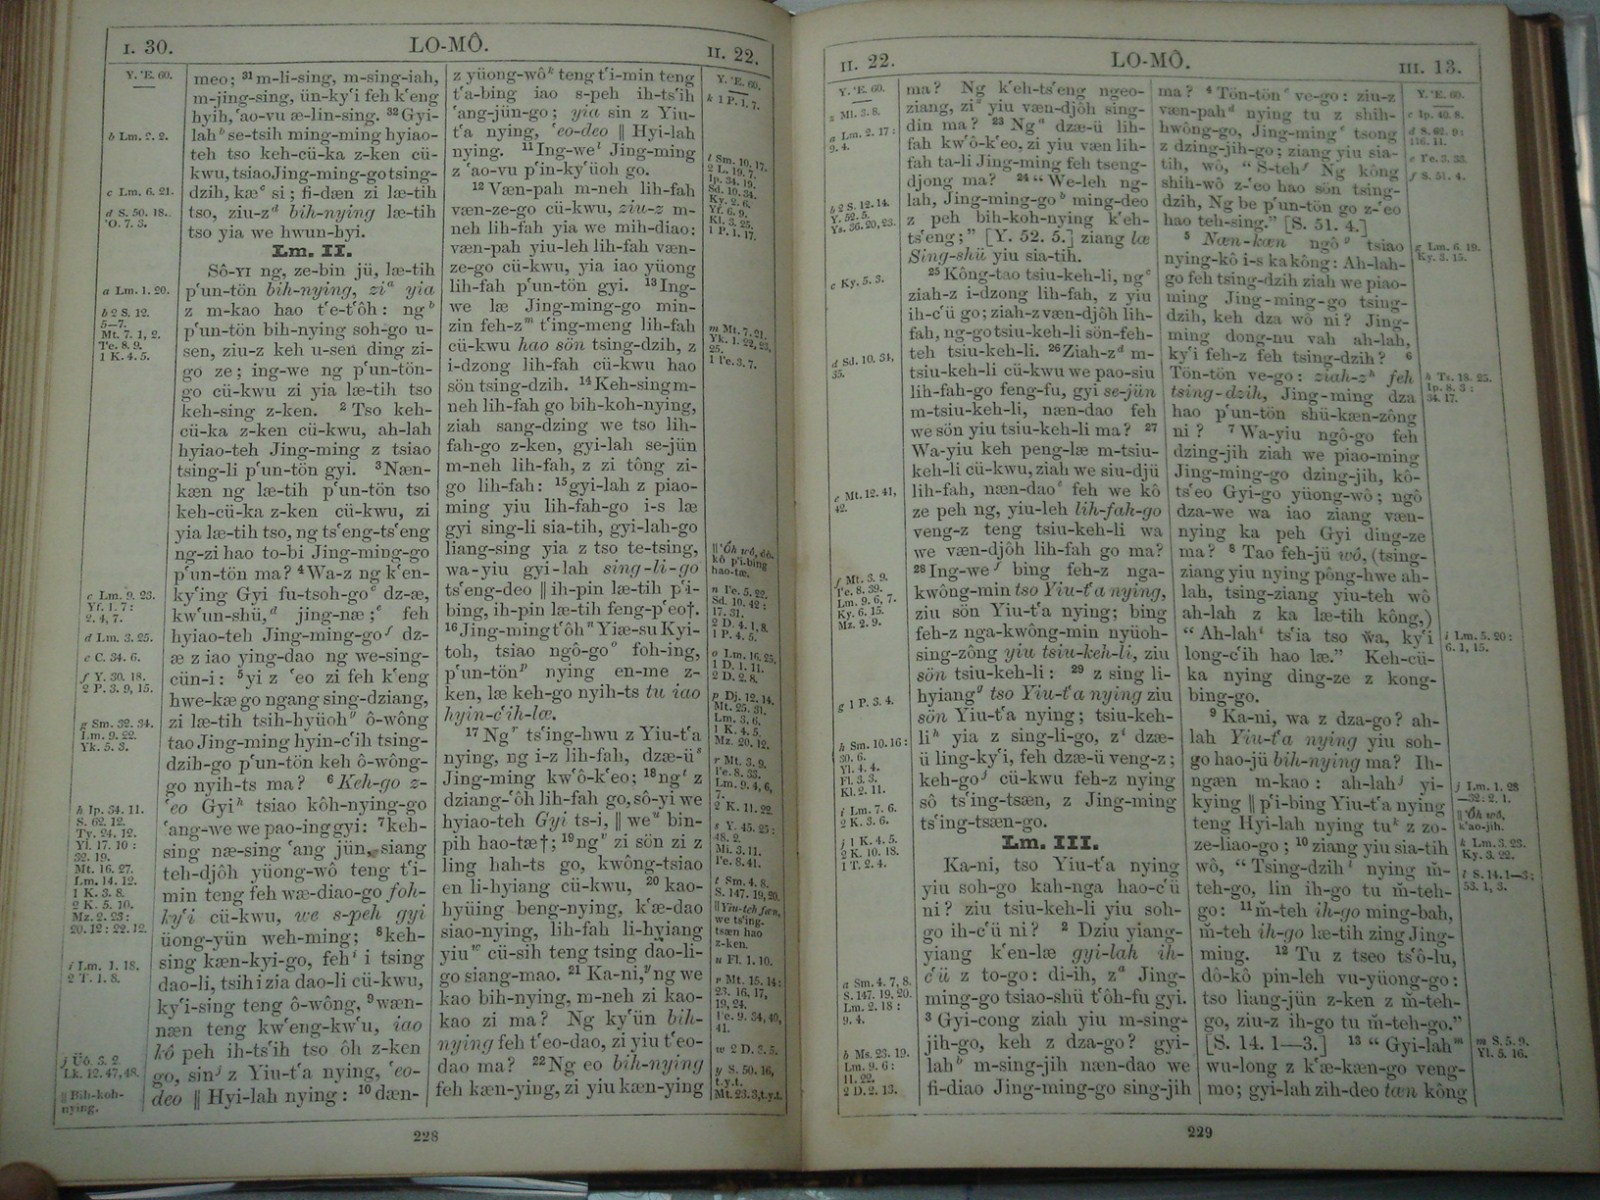 I. 30.
LO-MÔ.
II. 22.
Y. 'E. 60.
b Lm. 2. 2.
c Lm. 6. 21.
d S. 50. 18.
'O. 7. 3.
a Lm. 1. 20.
b 2 S. 12.
5—7.
Mt. 7. 1, 2.
Te. 8. 9.
1 K. 4. 5.
c Lm. 9. 23.
Yf. 1. 7:
2. 4, 7.
d Lm. 3. 25.
e C. 34. 6.
f Y. 30. 18.
2 P. 3. 9, 15.
g Sm. 32. 34.
Lm. 9. 22.
Yk. 5. 3.
h Ip. 34. 11.
S. 62. 12.
Ty. 24. 12.
Yl. 17. 10:
32. 19.
Mt. 16. 27.
Lm. 14. 12.
1 K. 3. 8.
2 K. 5. 10.
Mz. 2. 23:
20. 12: 22. 12.
i Lm. 1. 18.
2 T. 1. 8.
j Üô. 3. 2.
Lk. 12. 47, 48.
|| Bih-koh-
nying.
meo; 31 m-li-sing, m-sing-iah,
m-jing-sing, ün-ky'i feh k'eng
hyih, 'ao-vu æ-lin-sing. 32 Gyi-
lah b se-tsih ming-ming hyiao-
teh tso keh-cü-ka z-ken cü-
kwu, tsiao Jing-ming-go tsing-
dzih, kæ c si; fi-dæn zi læ-tih
tso, ziu-z d bih-nying læ-tih
tso yia we hwun-hyi.
Lm. II.
SÔ-YI ng, ze-bin jü, læ-tih
p'un-tön bih-nying, zi a yia
z m-kao hao t'e-t'ôh: ng b
p'un-tön bih-nying soh-go u-
sen, ziu-z keh u-sen ding zi-
go ze; ing-we ng p'un-tön-
go cü-kwu zi yia læ-tih tso
keh-sing z-ken. 2 Tso keh-
cü-ka z-ken cü-kwu, ah-lah
hyiao-teh Jing-ming z tsiao
tsing-li p'un-tön gyi. 3 Næn-
kæn ng læ-tih p'un-tön tso
keh-cü-ka z-ken cü-kwu, zi
yia læ-tih tso, ng ts'eng-ts'eng
ng-zi hao to-bi Jing-ming-go
p'un-tön ma? 4 Wa-z ng k'en-
ky'ing Gyi fu-tsoh-go c dz-æ,
kw'un-shü, d jing-næ; e feh
hyiao-teh Jing-ming-go f dz-
æ z iao ying-dao ng we-sing-
cün-i: 5 yi z 'eo zi feh k'eng
hwe-kæ go ngang sing-dziang,
zi læ-tih tsih-hyüoh g ô-wông
tao Jing-ming hyin-c'ih tsing-
dzih-go p'un-tön keh ô-wông-
go nyih-ts ma? 6 Keh-go z-
'eo Gyi h tsiao kôh-nying-go
'ang-we we pao-ing gyi: 7 keh-
sing næ-sing 'ang jün, siang
teh-djôh yüong-wô teng t'i-
min teng feh wæ-diao-go foh-
ky'i cü-kwu, we s-peh gyi
üong-yün weh-ming; 8 keh-
sing kæn-kyi-go, feh i i tsing
dao-li, tsih i zia dao-li cü-kwu,
ky'i-sing teng ô-wông, 9 wæn-
næn teng kw'eng-kw'u, iao
kô peh ih-ts'ih tso ôh z-ken
go, sin j z Yiu-t'a nying, 'eo-
deo || Hyi-lah nying: 10 dæn-
z yüong-wô k teng t'i-min teng
t'a-bing iao s-peh ih-ts'ih
'ang-jün-go; yia sin z Yiu-
t'a nying, 'eo-deo || Hyi-lah
nying. 11 Ing-we l Jing-ming
z 'ao-vu p'in-ky'üoh go.
12 Væn-pah m-neh lih-fah
væn-ze-go cü-kwu, ziu-z m-
neh lih-fah yia we mih-diao:
væn-pah yiu-leh lih-fah væn-
ze-go cü-kwu, yia iao yüong
lih-fah p'un-tön gyi. 13 Ing-
we læ Jing-ming-go min-
zin feh-z m t'ing-meng lih-fah
cü-kwu hao sön tsing-dzih, z
i-dzong lih-fah cü-kwu hao
sön tsing-dzih. 14 Keh-sing m-
neh lih-fah go bih-koh-nying,
ziah sang-dzing we tso lih-
fah-go z-ken, gyi-lah se-jün
m-neh lih-fah, z zi tông zi-
go lih-fah: 15 gyi-lah z piao-
ming yiu lih-fah-go i-s læ
gyi sing-li sia-tih, gyi-lah-go
liang-sing yia z tso te-tsing,
wa-yiu gyi-lah sing-li-go
ts'eng-deo || ih-pin læ-tih p'i-
bing, ih-pin læ-tih feng-p'eo†.
16 Jing-ming t'ôh n Yiæ-su Kyi-
toh, tsiao ngô-go o foh-ing,
p'un-tön p nying en-me z-
ken, læ keh-go nyih-ts tu iao
hyin-c'ih-læ.
17 Ng r ts'ing-hwu z Yiu-t'a
nying, ng i-z lih-fah, dzæ-ü s
Jing-ming kw'ô-k'eo; 18 ng t z
dziang-'ôh lih-fah go, sô-yi we
hyiao-teh Gyi ts-i, || we u bin-
pih hao-tæ†; 19 ng v zi sön zi z
ling hah-ts go, kwông-tsiao
en li-hyiang cü-kwu, 20 kao-
hyüing beng-nying, k'æ-dao
siao-nying, lih-fah li-hyiang
yiu w cü-sih teng tsing dao-li-
go siang-mao. 21 Ka-ni, y ng we
kao bih-nying, m-neh zi kao-
kao zi ma? Ng ky'ün bih-
nying feh t'eo-dao, zi yiu t'eo-
dao ma? 22 Ng eo bih-nying
feh kæn-ying, zi yiu kæn-ying
Y. 'E. 60.
k 1 P. 1. 7.
l Sm. 10. 17.
2 L. 19. 7.
Ip. 34. 19.
Sd. 10. 34.
Ky. 2. 6.
Yf. 6. 9.
Kl. 3. 25.
1 P. 1. 17.
m Mt. 7. 21.
Yk. 1. 22, 23,
25.
1 Te. 3. 7.
|| 'Ôh wô, ôô.
kô p'i-bing
hao-tæ.
n Te. 5. 22.
Sd. 10. 42:
17. 31.
2 D. 4. 1, 8.
1 P. 4. 5.
o Lm. 16. 25.
1 D. 1. 11.
2 D. 2. 8.
p Dj. 12. 14.
Mt. 25. 31.
Lm. 3. 6.
1 K. 4. 5.
Mz. 20. 12.
r Mt. 3. 9.
Te. 8. 33.
Lm. 9. 4, 6,
7.
2 K. 11. 22.
s Y. 45. 25:
48. 2.
Mi. 3. 11.
Te. 8. 41.
t Sm. 4. 8.
S. 147. 19, 20.
|| Yiu-teh fæn,
we ts'ing-
tsæn hao
z-ken.
u Fl. 1. 10.
v Mt. 15. 14:
23. 16, 17,
19, 24.
Te. 9. 34, 40,
41.
w 2 D. 3. 5.
y S. 50. 16,
t.y.t.
Mt. 23. 3, t.y.t.
228
II. 22.
LO-MÔ.
III. 13.
Y. 'E. 60.
z Ml. 3. 8.
a Lm. 2. 17:
9. 4.
b 2 S. 12. 14.
Y. 52. 5.
Ys. 36. 20, 23.
c Ky. 5. 3.
d Sd. 10. 34,
35.
e Mt. 12. 41,
42.
f Mt. 3. 9.
Te. 8. 39.
Lm. 9. 6, 7.
Ky. 6. 15.
Mz. 2. 9.
g 1 P. 3. 4.
h Sm. 10. 16:
30. 6.
Yl. 4. 4.
Fl. 3. 3.
Kl. 2. 11.
i Lm. 7. 6.
2 K. 3. 6.
j 1 K. 4. 5.
2 K. 10. 18.
1 T. 2. 4.
a Sm. 4. 7, 8.
S. 147. 19, 20.
Lm. 2. 18:
9. 4.
b Ms. 23. 19.
Lm. 9. 6:
11. 22.
2 D. 2. 13.
ma? Ng k'eh-ts'eng ngeo-
ziang, zi z yiu væn-djôh sing-
din ma? 23 Ng a dzæ-ü lih-
fah kw'ô-k'eo, zi yiu væn lih-
fah ta-li Jing-ming feh tseng-
djong ma? 24 “We-leh ng-
lah, Jing-ming-go b ming-deo
z peh bih-koh-nying k'eh-
ts'eng;” [Y. 52. 5.] ziang læ
Sing-shü yiu sia-tih.
25 Kông-tao tsiu-keh-li, ng c
ziah-z i-dzong lih-fah, z yiu
ih-c'ü go; ziah-z væn-djôh lih-
fah, ng-go tsiu-keh-li sön-feh-
teh tsiu-keh-li. 26 Ziah-z d m-
tsiu-keh-li cü-kwu we pao-siu
lih-fah-go feng-fu, gyi se-jün
m-tsiu-keh-li, næn-dao feh
we sön yiu tsiu-keh-li ma? 27
Wa-yiu keh peng-læ m-tsiu-
keh-li cü-kwu, ziah we siu-djü
lih-fah, næn-dao e feh we kô
ze peh ng, yiu-leh lih-fah-go
veng-z teng tsiu-keh-li wa
we væn-djôh lih-fah go ma?
28 Ing-we f bing feh-z nga-
kwông-min tso Yiu-t'a nying,
ziu sön Yiu-t'a nying; bing
feh-z nga-kwông-min nyüoh-
sing-zông yiu tsiu-keh-li, ziu
sön tsiu-keh-li: 29 z sing li-
hyiang g tso Yiu-t'a nying ziu
sön Yiu-t'a nying; tsiu-keh-
li h yia z sing-li-go, z i dzæ-
ü ling-ky'i, feh dzæ-ü veng-z;
keh-go j cü-kwu feh-z nying
sô ts'ing-tsæn, z Jing-ming
ts'ing-tsæn-go.
Lm. III.
Ka-ni, tso Yiu-t'a nying
yiu soh-go kah-nga hao-c'ü
ni? ziu tsiu-keh-li yiu soh-
go ih-c'ü ni? 2 Dziu yiang-
yiang k'en-læ gyi-lah ih-
c'ü z to-go: di-ih, z a Jing-
ming-go tsiao-shü t'ôh-fu gyi.
3 Gyi-cong ziah yiu m-sing-
jih-go, keh z dza-go? gyi-
lah b m-sing-jih næn-dao we
fi-diao Jing-ming-go sing-jih
ma? 4 Tön-tön c ve-go: ziu-z
væn-pah d nying tu z shih-
hwông-go, Jing-ming e tsong
z dzing-jih-go; ziang yiu sia-
tih, wô, “S-teh f Ng kông
shih-wô z-'eo hao sön tsing-
dzih, Ng be p'un-tön go z-'eo
hao teh-sing.” [S. 51. 4.]
5 Næn-kæn ngô g tsiao
nying-kô i-s ka kông: Ah-lah-
go feh tsing-dzih ziah we piao-
ming Jing-ming-go tsing-
dzih, keh dza wô ni? Jing-
ming dong-nu vah ah-lah,
ky'i feh-z feh tsing-dzih? 6
Tön-tön ve-go: ziah-z h feh
tsing-dzih, Jing-ming dza
hao p'un-tön shü-kæn-zông
ni? 7 Wa-yiu ngô-go feh
dzing-jih ziah we piao-ming
Jing-ming-go dzing-jih, kô-
ts'eo Gyi-go yüong-wô; ngô
dza-we wa iao ziang væn-
nying ka peh Gyi ding-ze
ma? 8 Tao feh-jü wô, (tsing-
ziang yiu nying pông-hwe ah-
lah, tsing-ziang yiu-teh wô
ah-lah z ka læ-tih kông,)
“Ah-lah i ts'ia tso wa, ky'i
long-c'ih hao læ.” Keh-cü-
ka nying ding-ze z kong-
bing-go.
9 Ka-ni, wa z dza-go? ah-
lah Yiu-t'a nying yiu soh-
go hao-jü bih-nying ma? Ih-
ngæn m-kao: ah-lah j yi-
kying || p'i-bing Yiu-t'a nying
teng Hyi-lah nying tu k z zo-
ze-liao-go; 10 ziang yiu sia-tih
wô, “Tsing-dzih l nying m̄-
teh-go, lin ih-go tu m̄-teh-
go: 11 m̄-teh ih-go ming-bah,
m̄-teh ih-go læ-tih zing Jing-
ming. 12 Tu z tseo ts'ô-lu,
dô-kô pin-leh vu-yüong-go:
tso liang-jün z-ken z m̄-teh-
go, ziu-z ih-go tu m̄-teh-go.”
[S. 14. 1—3.] 13 “Gyi-lah m
wu-long z k'æ-kæn-go veng-
mo; gyi-lah zih-deo tæn kông
Y. 'E. 60.
c Ip. 40. 8.
d S. 62. 9:
116. 11.
e Te. 3. 33.
f S. 51. 4.
g Lm. 6. 19.
Ky. 3. 15.
h Ts. 18. 25.
Ip. 8. 3:
34. 17.
i Lm. 5. 20:
6. 1, 15.
j Lm. 1. 28
—32: 2. 1.
|| 'Ôh wô,
k'ao-jih.
k Lm. 3. 23.
Ky. 3. 22.
l S. 14. 1—3:
53. 1, 3.
m S. 5. 9.
Yl. 5. 16.
229